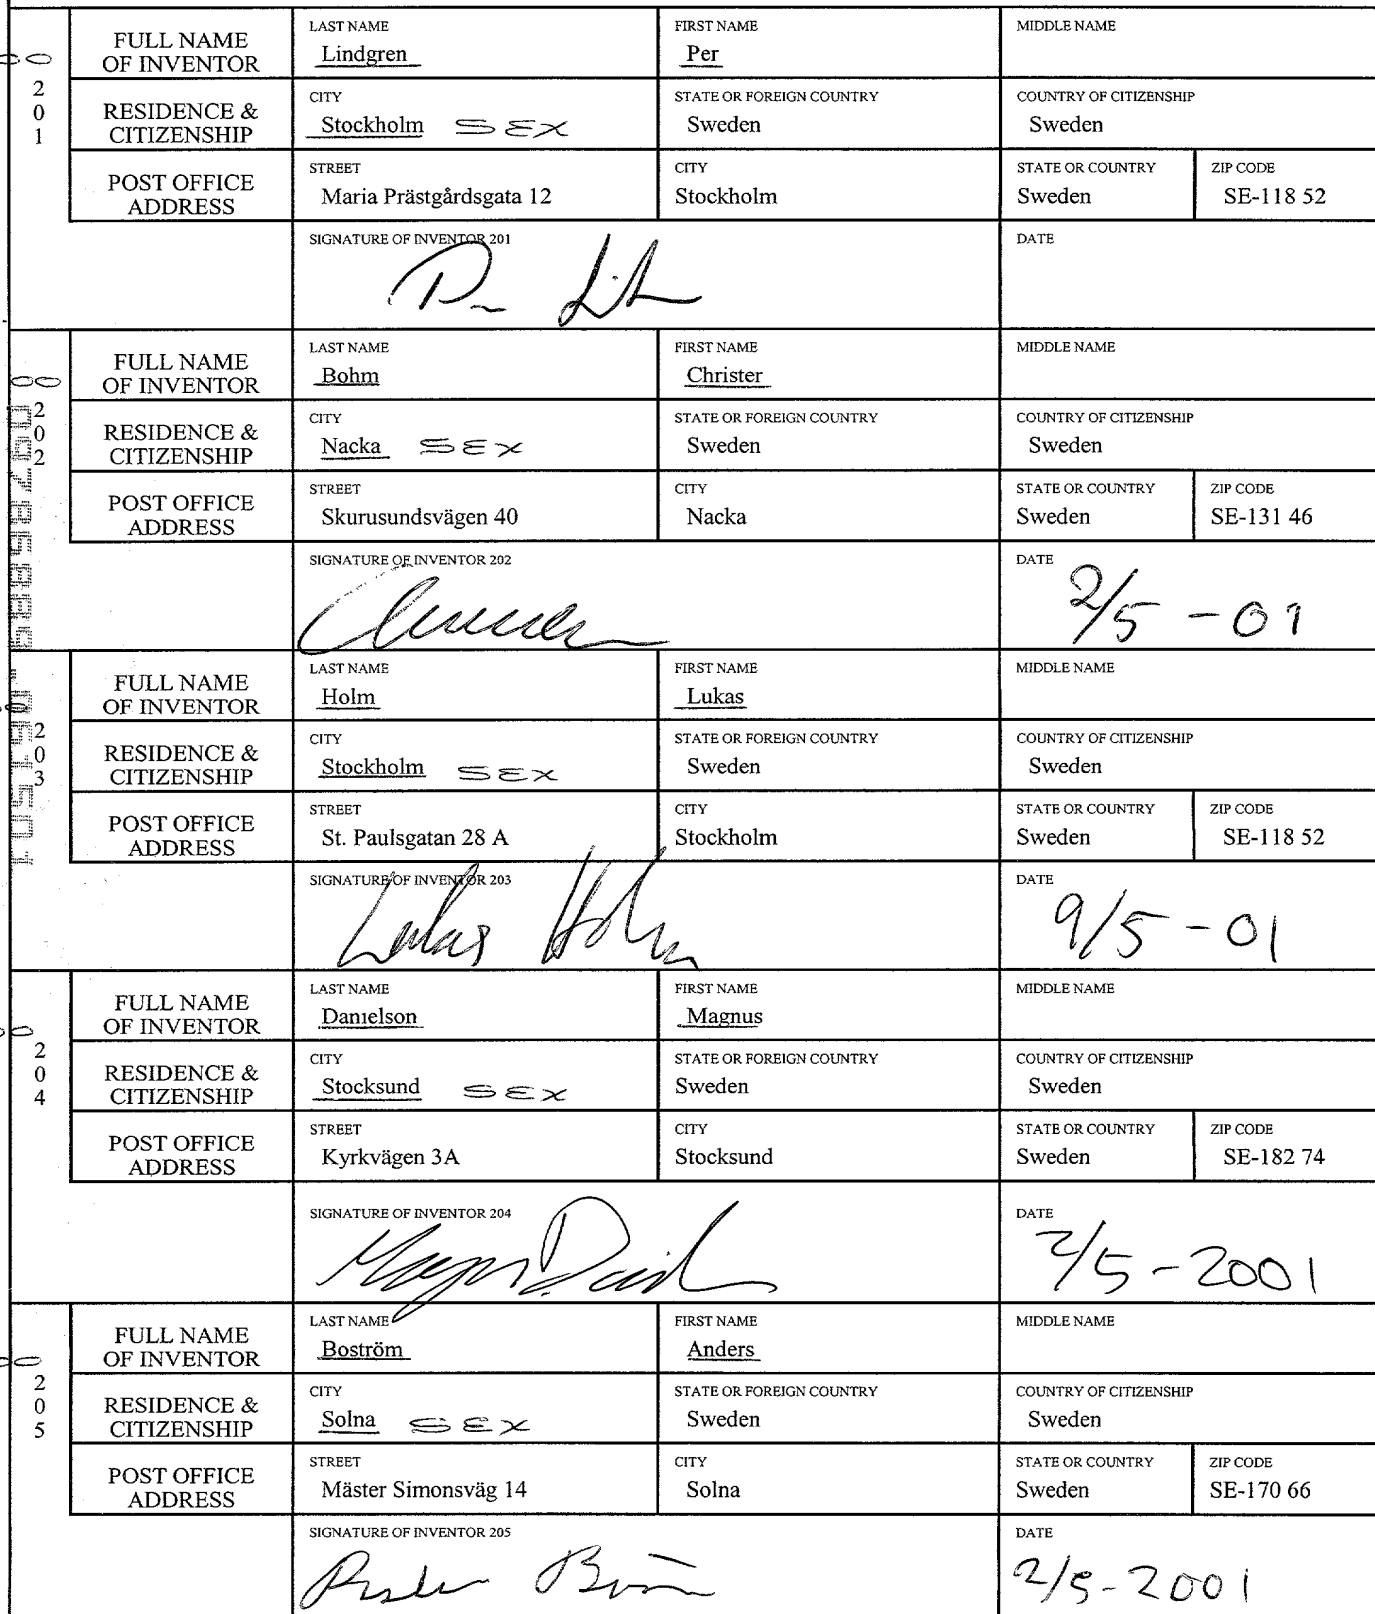 FULL NAME OF INVENTOR LAST NAME Lindgren FIRST NAME Per MIDDLE NAME
201
RESIDENCE & CITIZENSHIP CITY Stockholm SEX STATE OR FOREIGN COUNTRY Sweden COUNTRY OF CITIZENSHIP Sweden
POST OFFICE ADDRESS STREET Maria Prästgårdsgata 12 CITY Stockholm STATE OR COUNTRY Sweden ZIP CODE SE-118 52
SIGNATURE OF INVENTOR 201 DATE
FULL NAME OF INVENTOR LAST NAME Bohm FIRST NAME Christer MIDDLE NAME
202
RESIDENCE & CITIZENSHIP CITY Nacka SEX STATE OR FOREIGN COUNTRY Sweden COUNTRY OF CITIZENSHIP Sweden
POST OFFICE ADDRESS STREET Skurusundsvägen 40 CITY Nacka STATE OR COUNTRY Sweden ZIP CODE SE-131 46
SIGNATURE OF INVENTOR 202 DATE 2/5 -01
FULL NAME OF INVENTOR LAST NAME Holm FIRST NAME Lukas MIDDLE NAME
203
RESIDENCE & CITIZENSHIP CITY Stockholm SEX STATE OR FOREIGN COUNTRY Sweden COUNTRY OF CITIZENSHIP Sweden
POST OFFICE ADDRESS STREET St. Paulsgatan 28 A CITY Stockholm STATE OR COUNTRY Sweden ZIP CODE SE-118 52
SIGNATURE OF INVENTOR 203 Lukas Holm DATE 9/5 -01
FULL NAME OF INVENTOR LAST NAME Danielson FIRST NAME Magnus MIDDLE NAME
204
RESIDENCE & CITIZENSHIP CITY Stocksund SEX STATE OR FOREIGN COUNTRY Sweden COUNTRY OF CITIZENSHIP Sweden
POST OFFICE ADDRESS STREET Kyrkvägen 3A CITY Stocksund STATE OR COUNTRY Sweden ZIP CODE SE-182 74
SIGNATURE OF INVENTOR 204 DATE 2/5-2001
FULL NAME OF INVENTOR LAST NAME Boström FIRST NAME Anders MIDDLE NAME
205
RESIDENCE & CITIZENSHIP CITY Solna SEX STATE OR FOREIGN COUNTRY Sweden COUNTRY OF CITIZENSHIP Sweden
POST OFFICE ADDRESS STREET Mäster Simonsväg 14 CITY Solna STATE OR COUNTRY Sweden ZIP CODE SE-170 66
SIGNATURE OF INVENTOR 205 DATE 2/5-2001